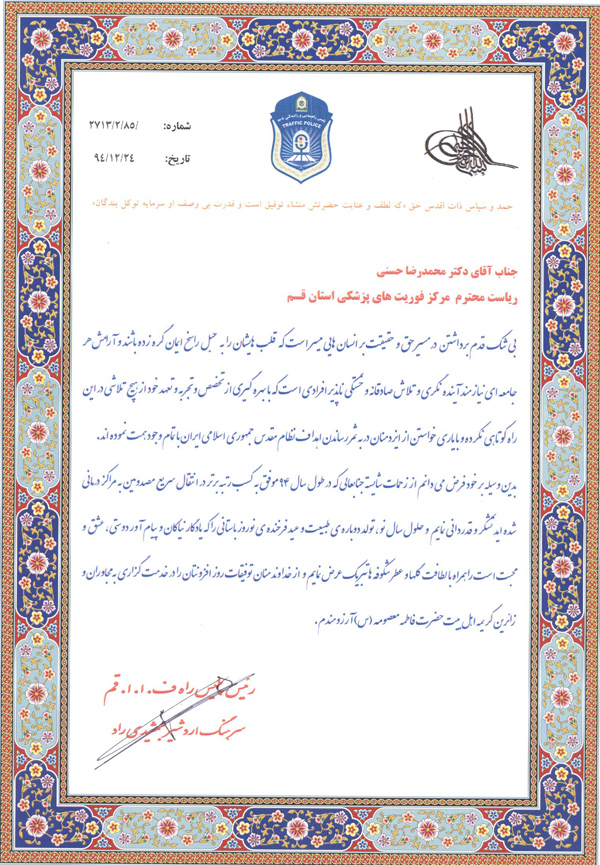 شماره: ۲۷۱۳/۲/۸۵/
تاریخ: ۹٤/۱۲/۲٤
پلیس راهنمایی و رانندگی ناجا
TRAFFIC POLICE
حمد و سپاس ذات اقدس حق «که لطف و عنایت حضرتش منشاء توفیق است و قدرت بی وصف او سرمایه توکل بندگان»
جناب آقای دکتر محمدرضا حسنی
ریاست محترم مرکز فوریت های پزشکی استان قم
بی شک قدم برداشتن در مسیر حق و حقیقت بر انسان هایی میسر است که قلب هایشان را به حبل راسخ ایمان گره زده باشند و آرامش هر
جامعه ای نیازمند آینده نگری و تلاش صادقانه و خستگی ناپذیر افرادی است که با بهره گیری از تخصص و تجربه و تعهد خود از هیچ تلاشی در این
راه کوتاهی نکرده و با یاری خواستن از ایزدمنان در به ثمر رساندن اهداف نظام مقدس جمهوری اسلامی ایران با تمام وجود همت نموده اند.
بدین وسیله بر خود فرض می دانم از زحمات شایسته جنابعالی که در طول سال ۹۴ موفق به کسب رتبه برتر در انتقال سریع مصدومین به مراکز درمانی
شده اید تشکر و قدردانی نمایم و حلول سال نو، تولد دوباره ی طبیعت و عید فرخنده ی نوروز باستانی را که یادگار نیاکان و پیام آور دوستی، عشق و
محبت است را همراه با لطافت گلها و عطر شکوفه ها تبریک عرض نمایم و از خداوند منان توفیقات روز افزونتان را در خدمت گزاری به مجاوران و
زائرین کریمه اهل بیت حضرت فاطمه معصومه (س) آرزومندم.
رئیس پلیس راه ف.ا.ا. قم
سرهنگ اردشیر راد